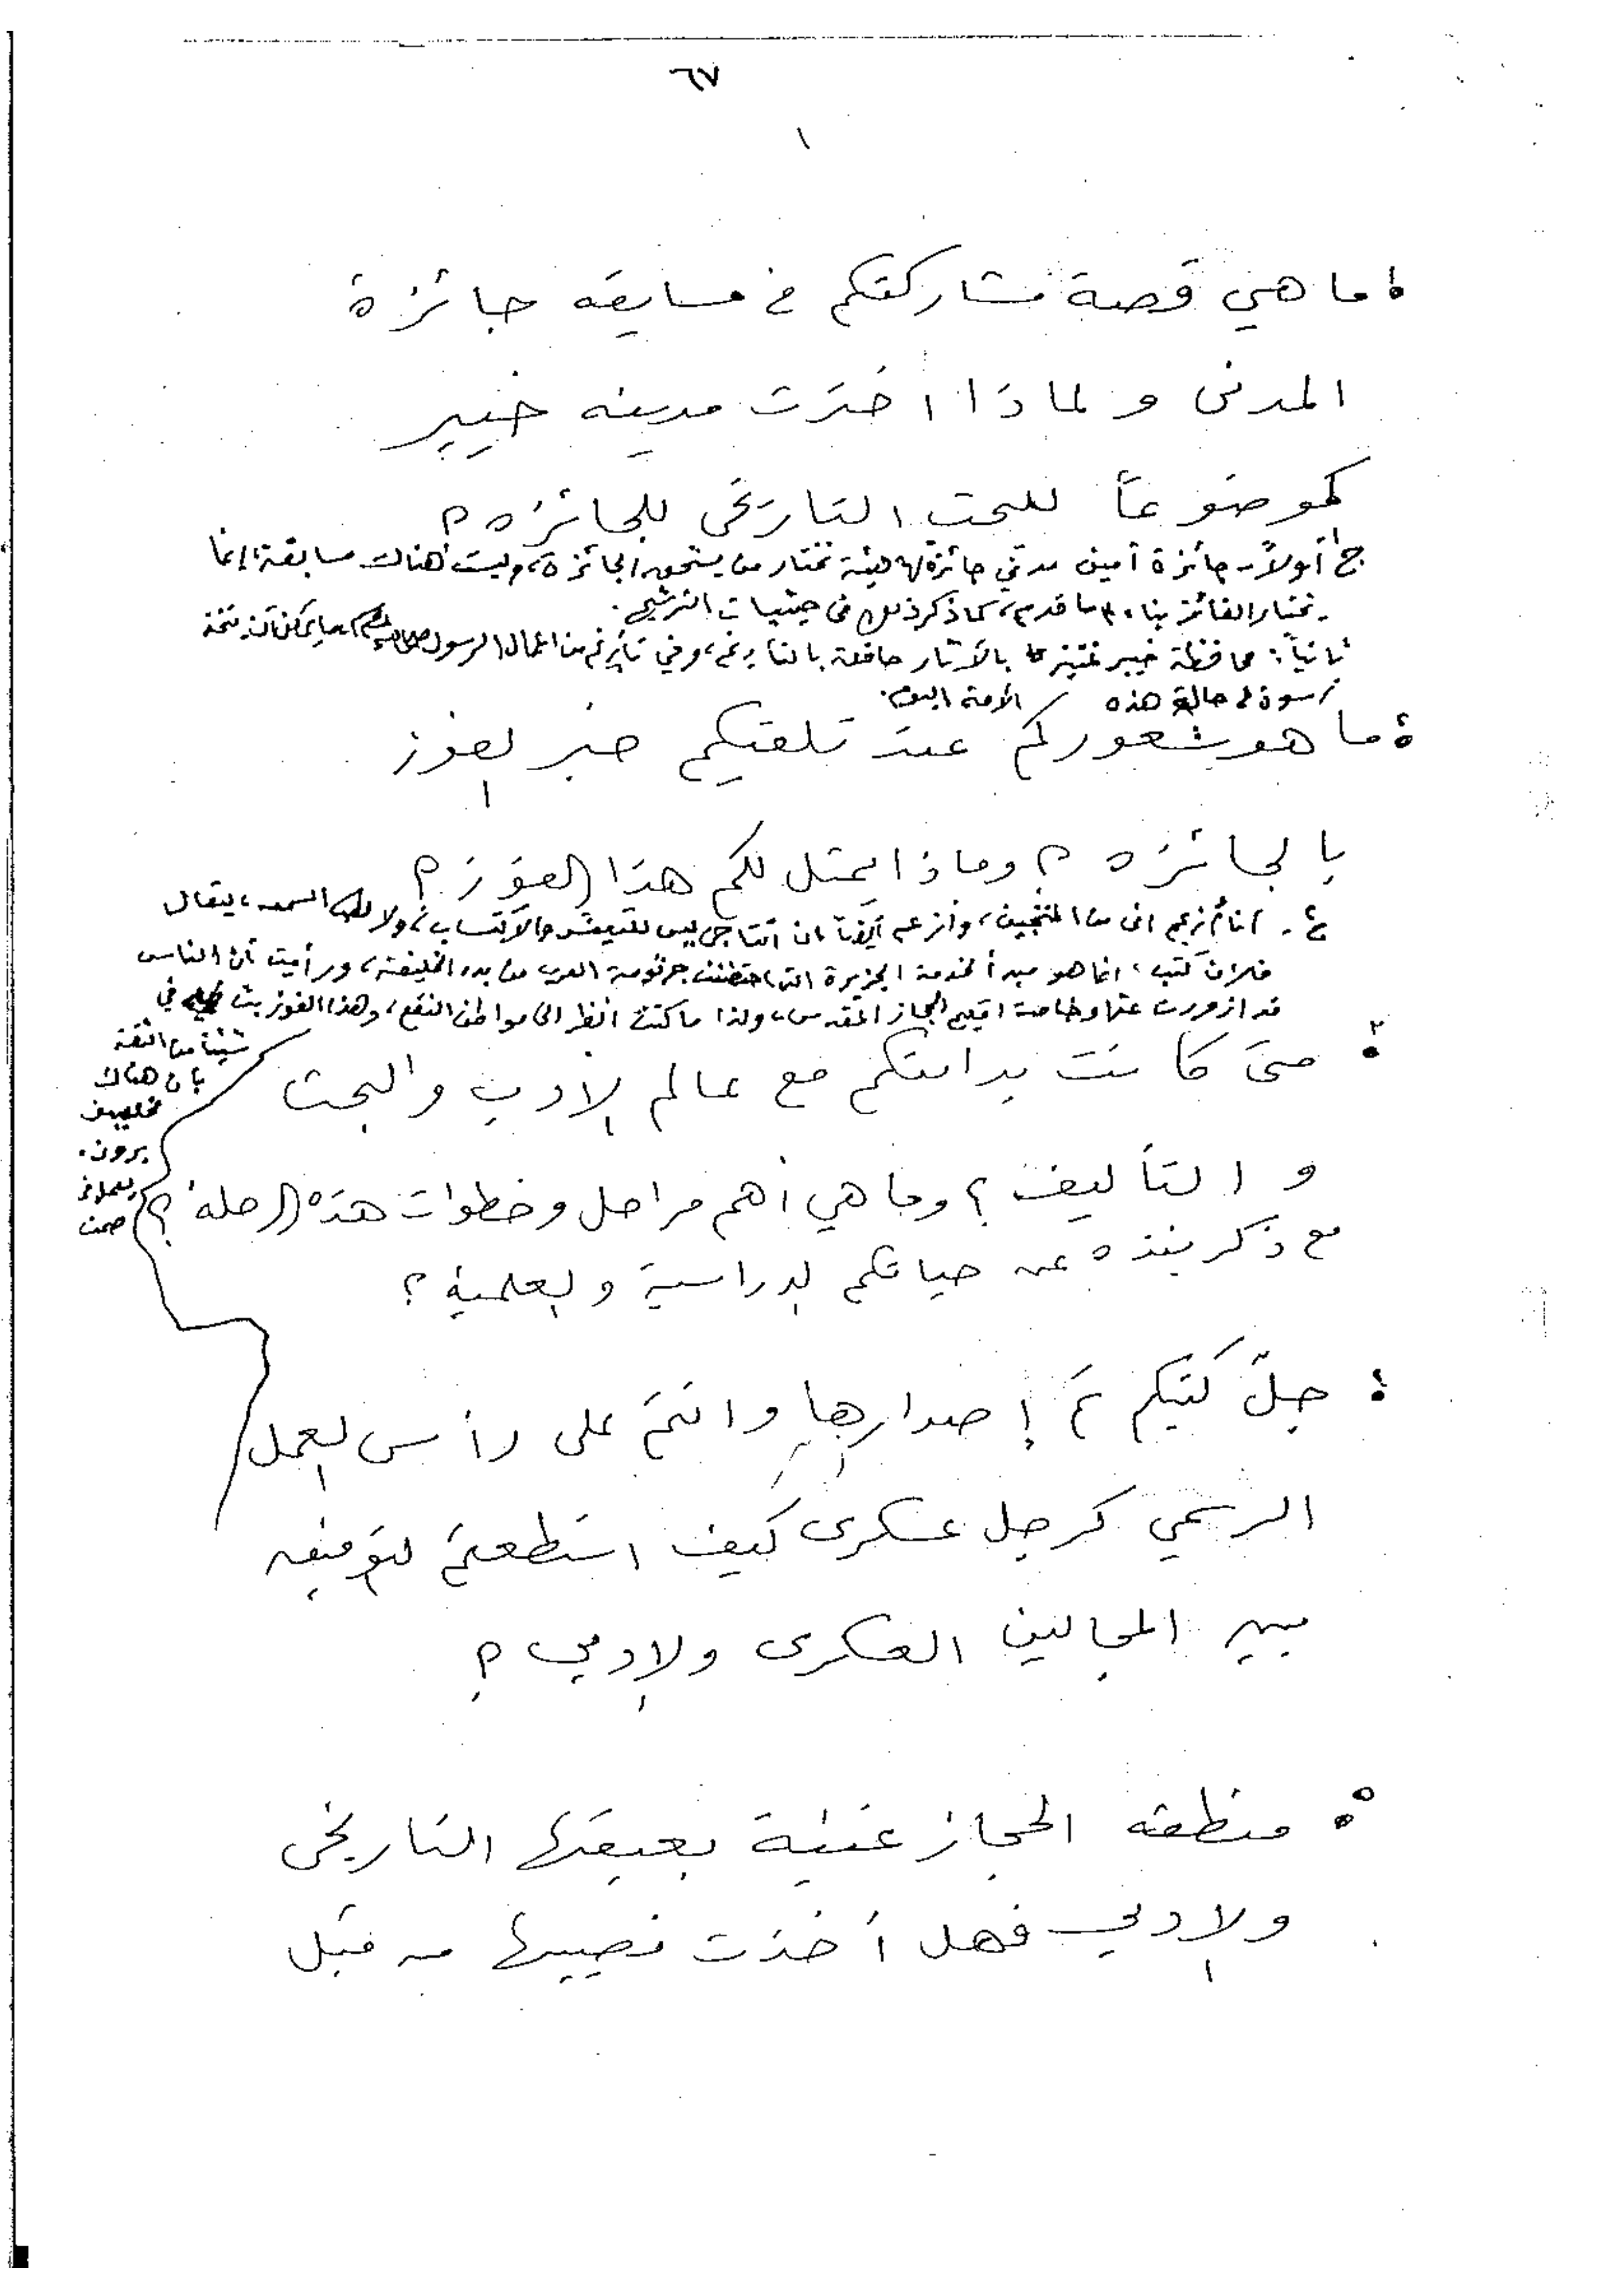 ٦٧
١
ما هي قصة مشاركتكم في مسابقه جائزة
المدني ولماذا اخترت مدينه خيبر
كموضوعاً للبحث التاريخي للجائزه ؟
ج١ أولاً - جائزة أمين مدني جائزة لها هيئة تختار من يستحق الجائزة، وليست هناك مسابقة، إنما
يختار الفائز بناء ما قدم، كما ذكر ذلك في حيثيات الترشيح.
ثانياً: محافظة خيبر غنية بالآثار حافلة بالتاريخ، وفي تاريخ من أعمال الرسول صلى الله عليه وسلم ما يمكن أن نتخذ
أسوة لحالة هذه الأمة اليوم.
ما هو شعوركم عند تلقيكم خبر الفوز
بالجائزه ؟ وماذا يمثل لكم هذا الفوز ؟
ج - أنا أزعم اني من المنتجين، وأزعم أيضاً ان انتاجي ليس للتعيش والاكتساب، ولا السمعه، ليقال
فلان كتب، انما هو مبدأ لخدمة الجزيرة التي احتضنت جرثومة العرب من بدء الخليقة، ورأيت أن الناس
قد ازورت عنها وخاصة اقليم الحجاز المقدس، ولذا ما كنت انظر الى مواطن النفع، وهذا الفوز بث في
شيئاً من الثقة
بان هناك
مخلصين
يرون
لعملي
٣ متى كانت بدايتكم مع عالم الادب والبحث
والتأليف ؟ وما هي أهم مراحل وخطوات هذه الرحله ؟
مع ذكر نبذه عن حياتكم الدراسية والعلمية ؟
٤ جلّ كتبكم تم إصدارها وانتم على رأس العمل
الرسمي كرجل عسكري كيف استطعتم التوفيق
بين المجالين العسكري والادبي ؟
٥ منطقه الحجاز غنية بعبقها التاريخي
والادبي فهل أخذت نصيبها من قبل